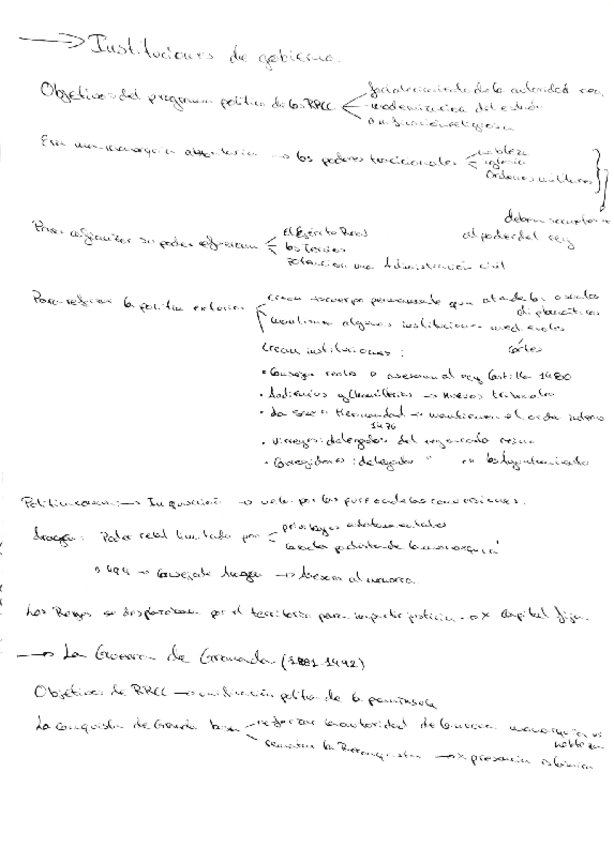 → Instituciones de gobierno.
Objetivos del programa político de los RRCC
fortalecimiento de la autoridad real
modernización del estado
unificación religiosa
Era una monarquía autoritaria → los poderes tradicionales
nobleza
iglesia
Órdenes militares
deben someterse
al poder del rey
Para afianzar su poder refuerzan
El Ejército Real
los Tercios
potencian una Administración civil
Para reforzar la política exterior
crean un cuerpo permanente
diplomáticos
mantienen algunas instituciones medievales
Cortes
Crean instituciones :
• Consejos reales → asesoran al rey Castilla 1480
• Audiencias y Chancillerías → Nuevos tribunales
• La Santa Hermandad → mantienen el orden interno
1476
• Virreyes: delegados del rey en cada reino
• Corregidores : delegados " en los Ayuntamientos
→ Inquisición → vela por la pureza de las conversiones.
Aragón: Poder real limitado por
privilegios
la monarquía
1494 → Consejo de Aragón → Asesora al monarca.
Los Reyes se desplazaban por el territorio para impartir justicia → x capital fija.
→ La Guerra de Granada (1481-1492)
Objetivos de RRCC → unificación política de la península
La conquista de Granada
reforzar la autoridad de la nueva monarquía vs
nobleza
la Reconquista → x presencia islámica